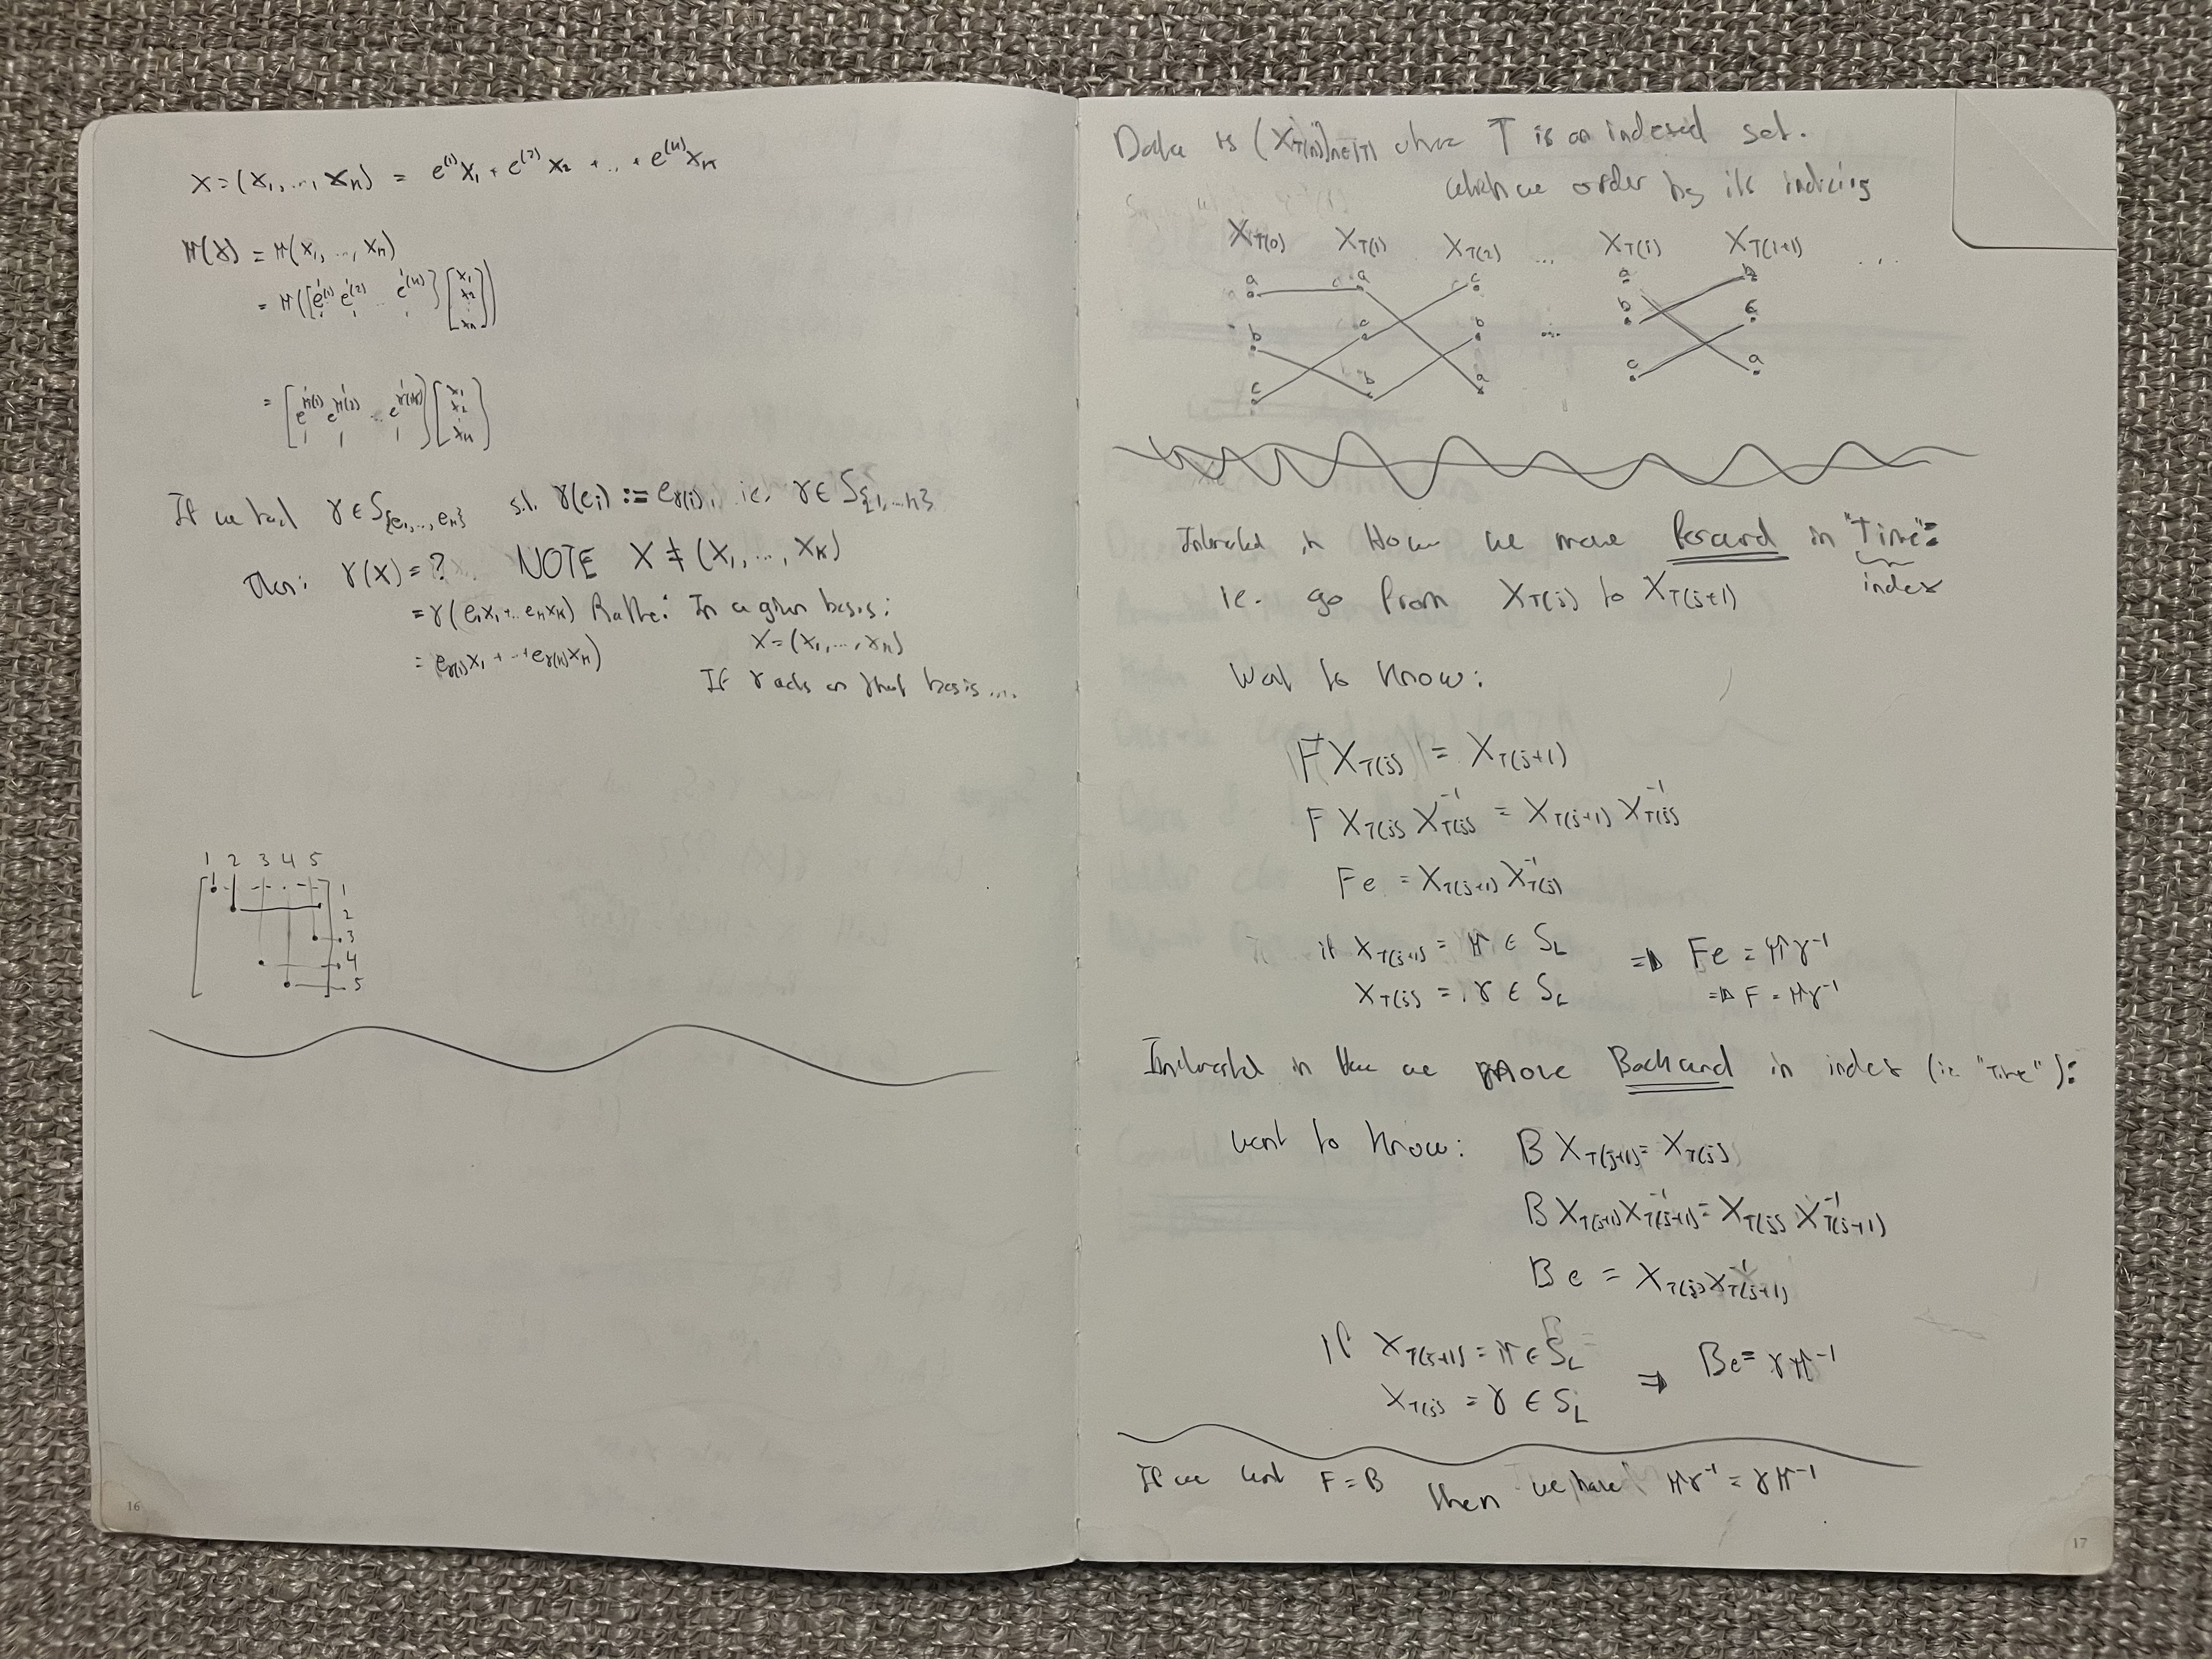 X = (x₁, ..., xₙ) = e⁽¹⁾x₁ + e⁽²⁾x₂ + ... + e⁽ⁿ⁾xₙ
π(X) = π(x₁, ..., xₙ)
= π([e⁽¹⁾ e⁽²⁾ ... e⁽ⁿ⁾] [x₁ x₂ xₙ])
= [e^π(1) e^π(2) ... e^π(n)] [x₁ x₂ xₙ]
If we had γ ∈ S{e₁, ..., eₙ} s.t. γ(eᵢ) := e_γ(i), ie, γ ∈ S{1, ... n}
Then: γ(X) = ? NOTE X ≠ (x₁, ..., xₙ)
= γ(e₁x₁ + .. eₙxₙ) Rather: In a given basis:
X = (x₁, ..., xₙ)
= e_γ(1)x₁ + .. + e_γ(n)xₙ If γ acts on that basis ...
1 2 3 4 5
1
2
3
4
5
16
Data is (X_T(n))n∈|T| where T is an indexed set.
which we order by its indicies
X_T(0) X_T(1) X_T(2) ... X_T(i) X_T(i+1) ...
a a c a b
b c b ... b c
c b a c a
Interested in How we move forward in "Time":
ie. go from X_T(j) to X_T(j+1) index
Want to know:
F X_T(j) = X_T(j+1)
F X_T(j) X⁻¹_T(j) = X_T(j+1) X⁻¹_T(j)
F e = X_T(j+1) X⁻¹_T(j)
if X_T(j+1) = π ∈ S_L ⇒ Fe = πγ⁻¹
X_T(j) = γ ∈ S_L ⇒ F = πγ⁻¹
Interested in how we move Backward in index (ie "Time"):
want to know: B X_T(j+1) = X_T(j)
B X_T(j+1) X⁻¹_T(j+1) = X_T(j) X⁻¹_T(j+1)
B e = X_T(j) X⁻¹_T(j+1)
If X_T(j+1) = π ∈ S_L
X_T(j) = γ ∈ S_L ⇒ Be = γπ⁻¹
If we want F = B then we have πγ⁻¹ = γπ⁻¹
17